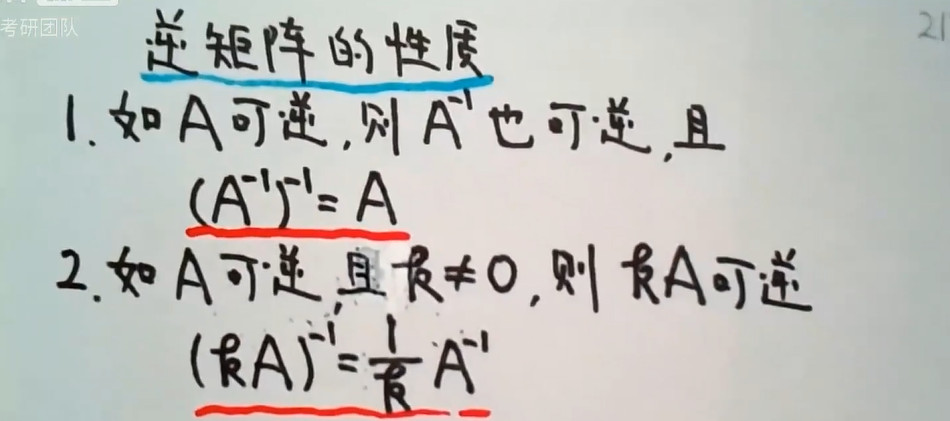 考研团队
21
逆矩阵的性质
1. 如 A 可逆, 则 A⁻¹ 也可逆, 且
(A⁻¹)⁻¹ = A
2. 如 A 可逆, 且 k ≠ 0, 则 kA 可逆
(kA)⁻¹ = 1/k A⁻¹